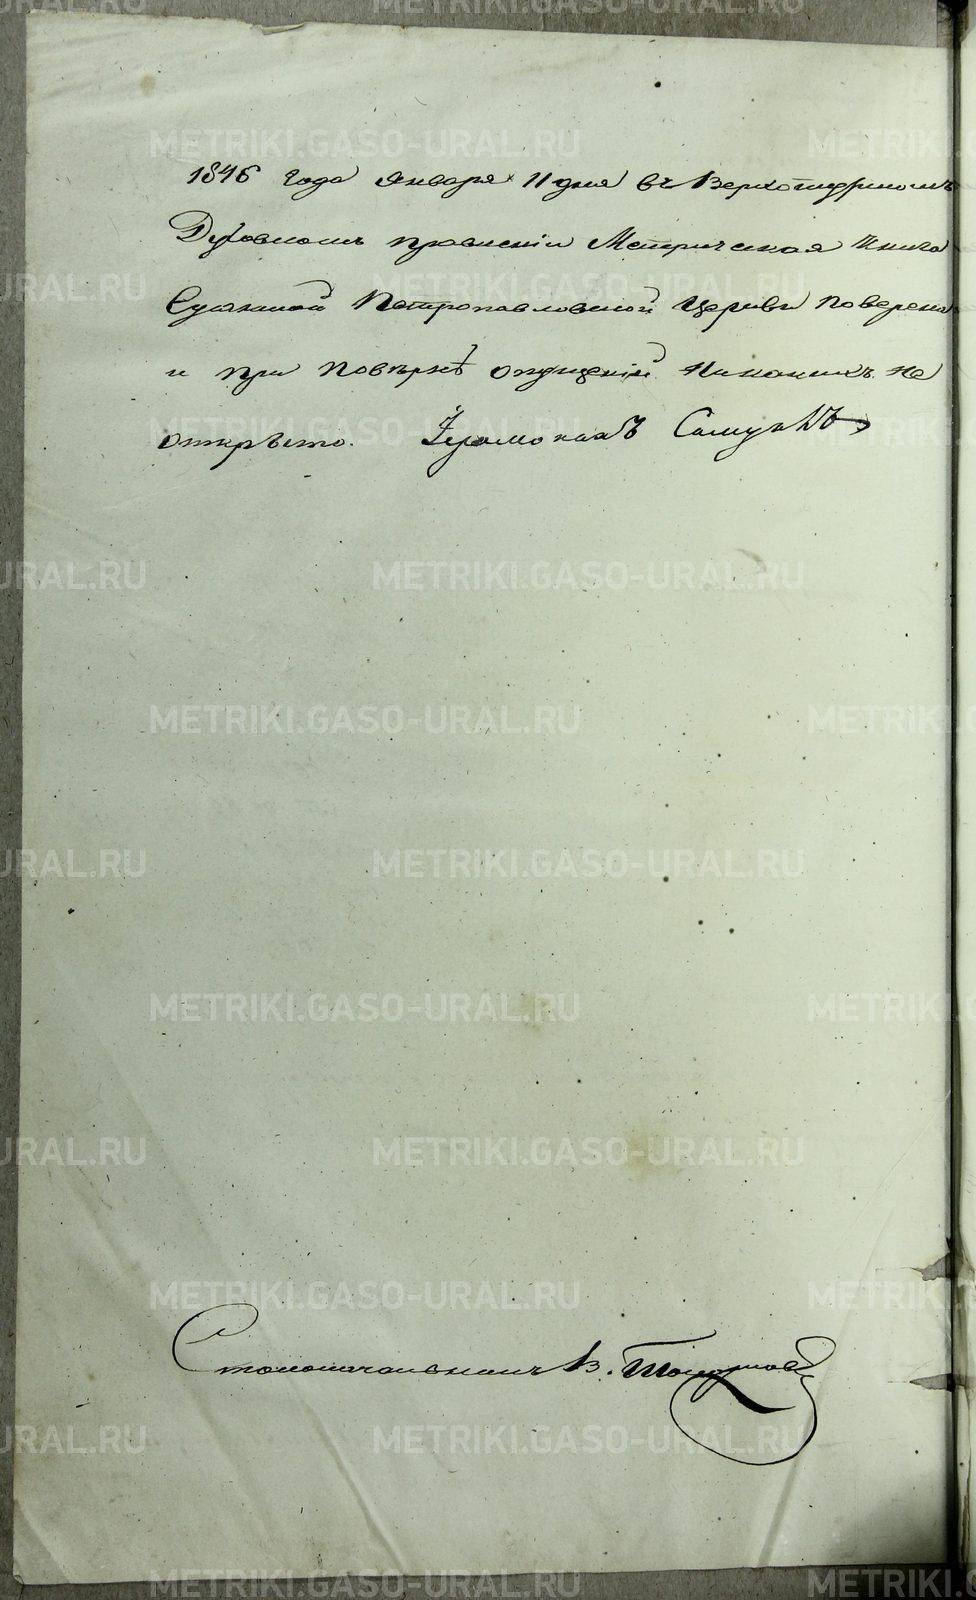 1846 года Января 11 дня въ Верхотурскомъ
Духовномъ правленіи Метрическая Книга
Петропавловской Церкви поверена
и при повѣркѣ опущеній никакихъ не
открыто. Іеромонахъ Самуилъ
Столоначальникъ В.
METRIKI.GASO-URAL.RU